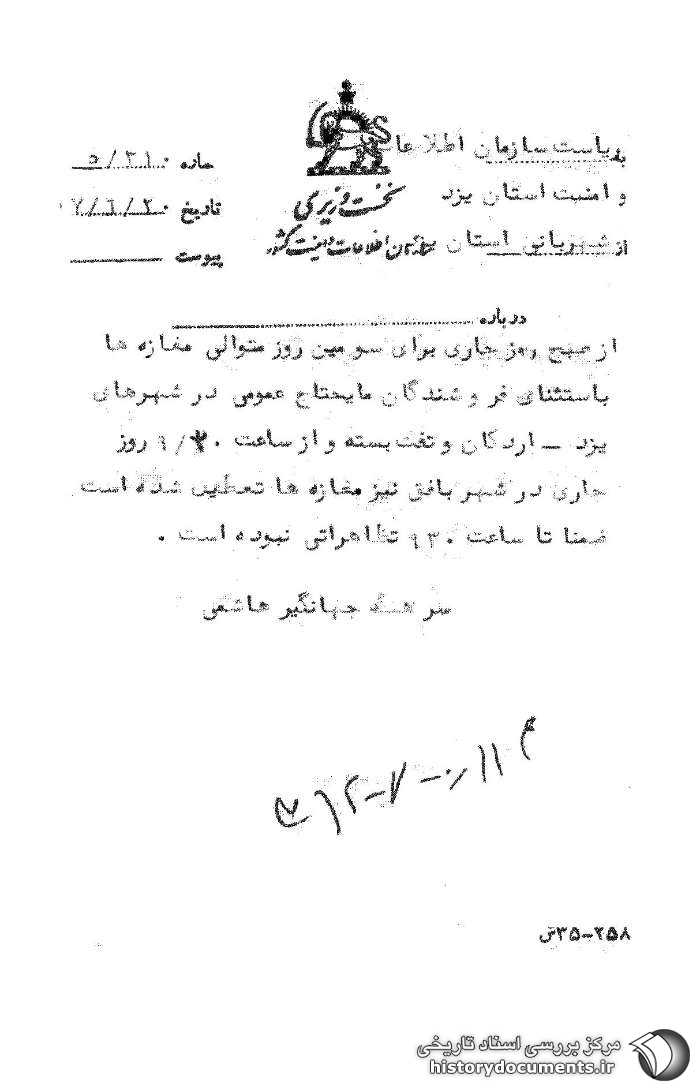 به ریاست سازمان اطلاعات
و امنیت استان یزد
از شهربانی استان یزد
نخست وزیری
سازمان اطلاعات و امنیت کشور
شماره ۵/۲۱۰
تاریخ ۷/۶/۲۰
پیوست
درباره
از صبح روز جاری برای سومین روز متوالی مغازه ها
باستثنای فروشندگان مایحتاج عمومی در شهرهای
یزد ــ اردکان و تفت بسته و از ساعت روز
جاری در شهر بافق نیز مغازه ها تعطیل شده است
ضمنا تا ساعت ۹۳۰ تظاهراتی نبوده است .
سرهنگ جهانگیر هاشمی
۲۵۸-۳۵ش
مرکز بررسی اسناد تاریخی
historydocuments.ir